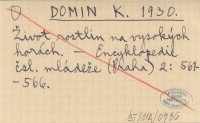 DOMIN K. 1930.
Život rostlin na vysokých
horách. – Encyklopedie
čsl. mládeže (Praha) 2: 561
-566.